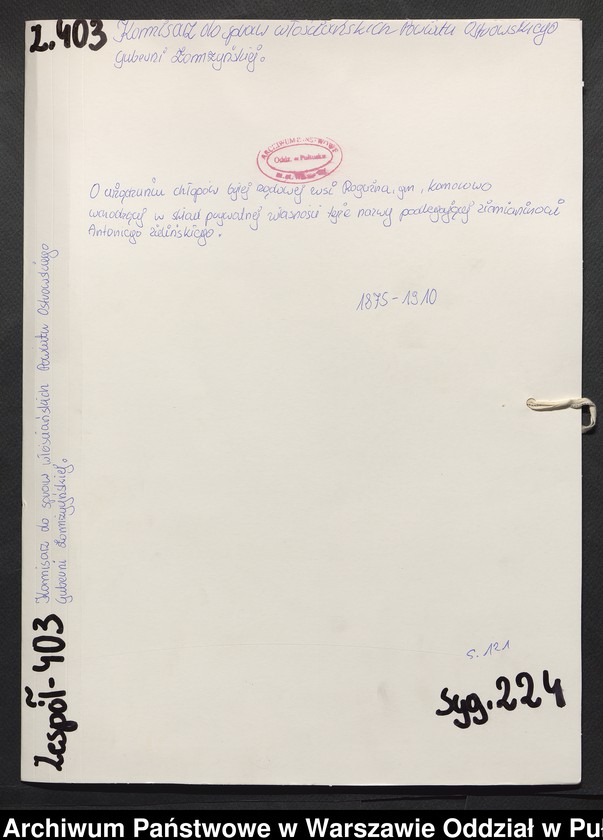 z.403 Komisarz do spraw włościańskich Powiatu Ostrowskiego
Guberni Łomżyńskiej.
ARCHIWUM PAŃSTWOWE
Oddz. w Pułtusku
O urządzeniu chłopów byłej rządowej wsi Rogóźnia, gm. Komorowo
wchodzącej w skład prywatnej własności tejże nazwy podlegającej ziemianinowi
Antoniego Zielińskiego.
1875-1910
Komisarz do spraw włościańskich Powiatu Ostrowskiego
Guberni Łomżyńskiej.
Zespół-403
s. 121
syg. 224
Archiwum Państwowe w Warszawie Oddział w Puł